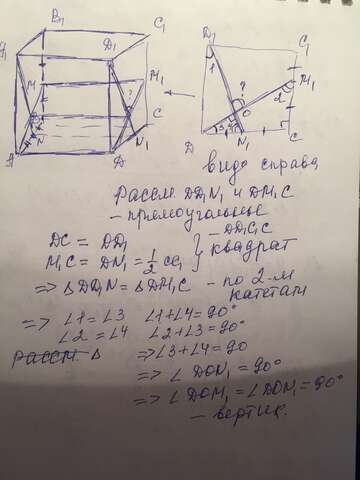 B₁
C₁
A₁
D₁
M
M₁
?
C
N
A
D
N₁
D₁
C₁
1
M₁
?
2
O
3
4
D
N₁
C
вид справа
Рассм. DD₁N₁ и DM₁C
– прямоугольные
DC = DD₁ – DD₁C₁C
M₁C = DN₁ = 1/2 CC₁ } квадрат
⇒ △DD₁N = △DM₁C – по 2-м
катетам
⇒ ∠1 = ∠3 ∠1+∠4=90°
∠2 = ∠4 ∠2+∠3=90°
Рассм. △ ⇒ ∠3+∠4=90
⇒ ∠DON₁ = 90°
⇒ ∠DOM₁ = ∠DON₁ = 90°
– вертик.